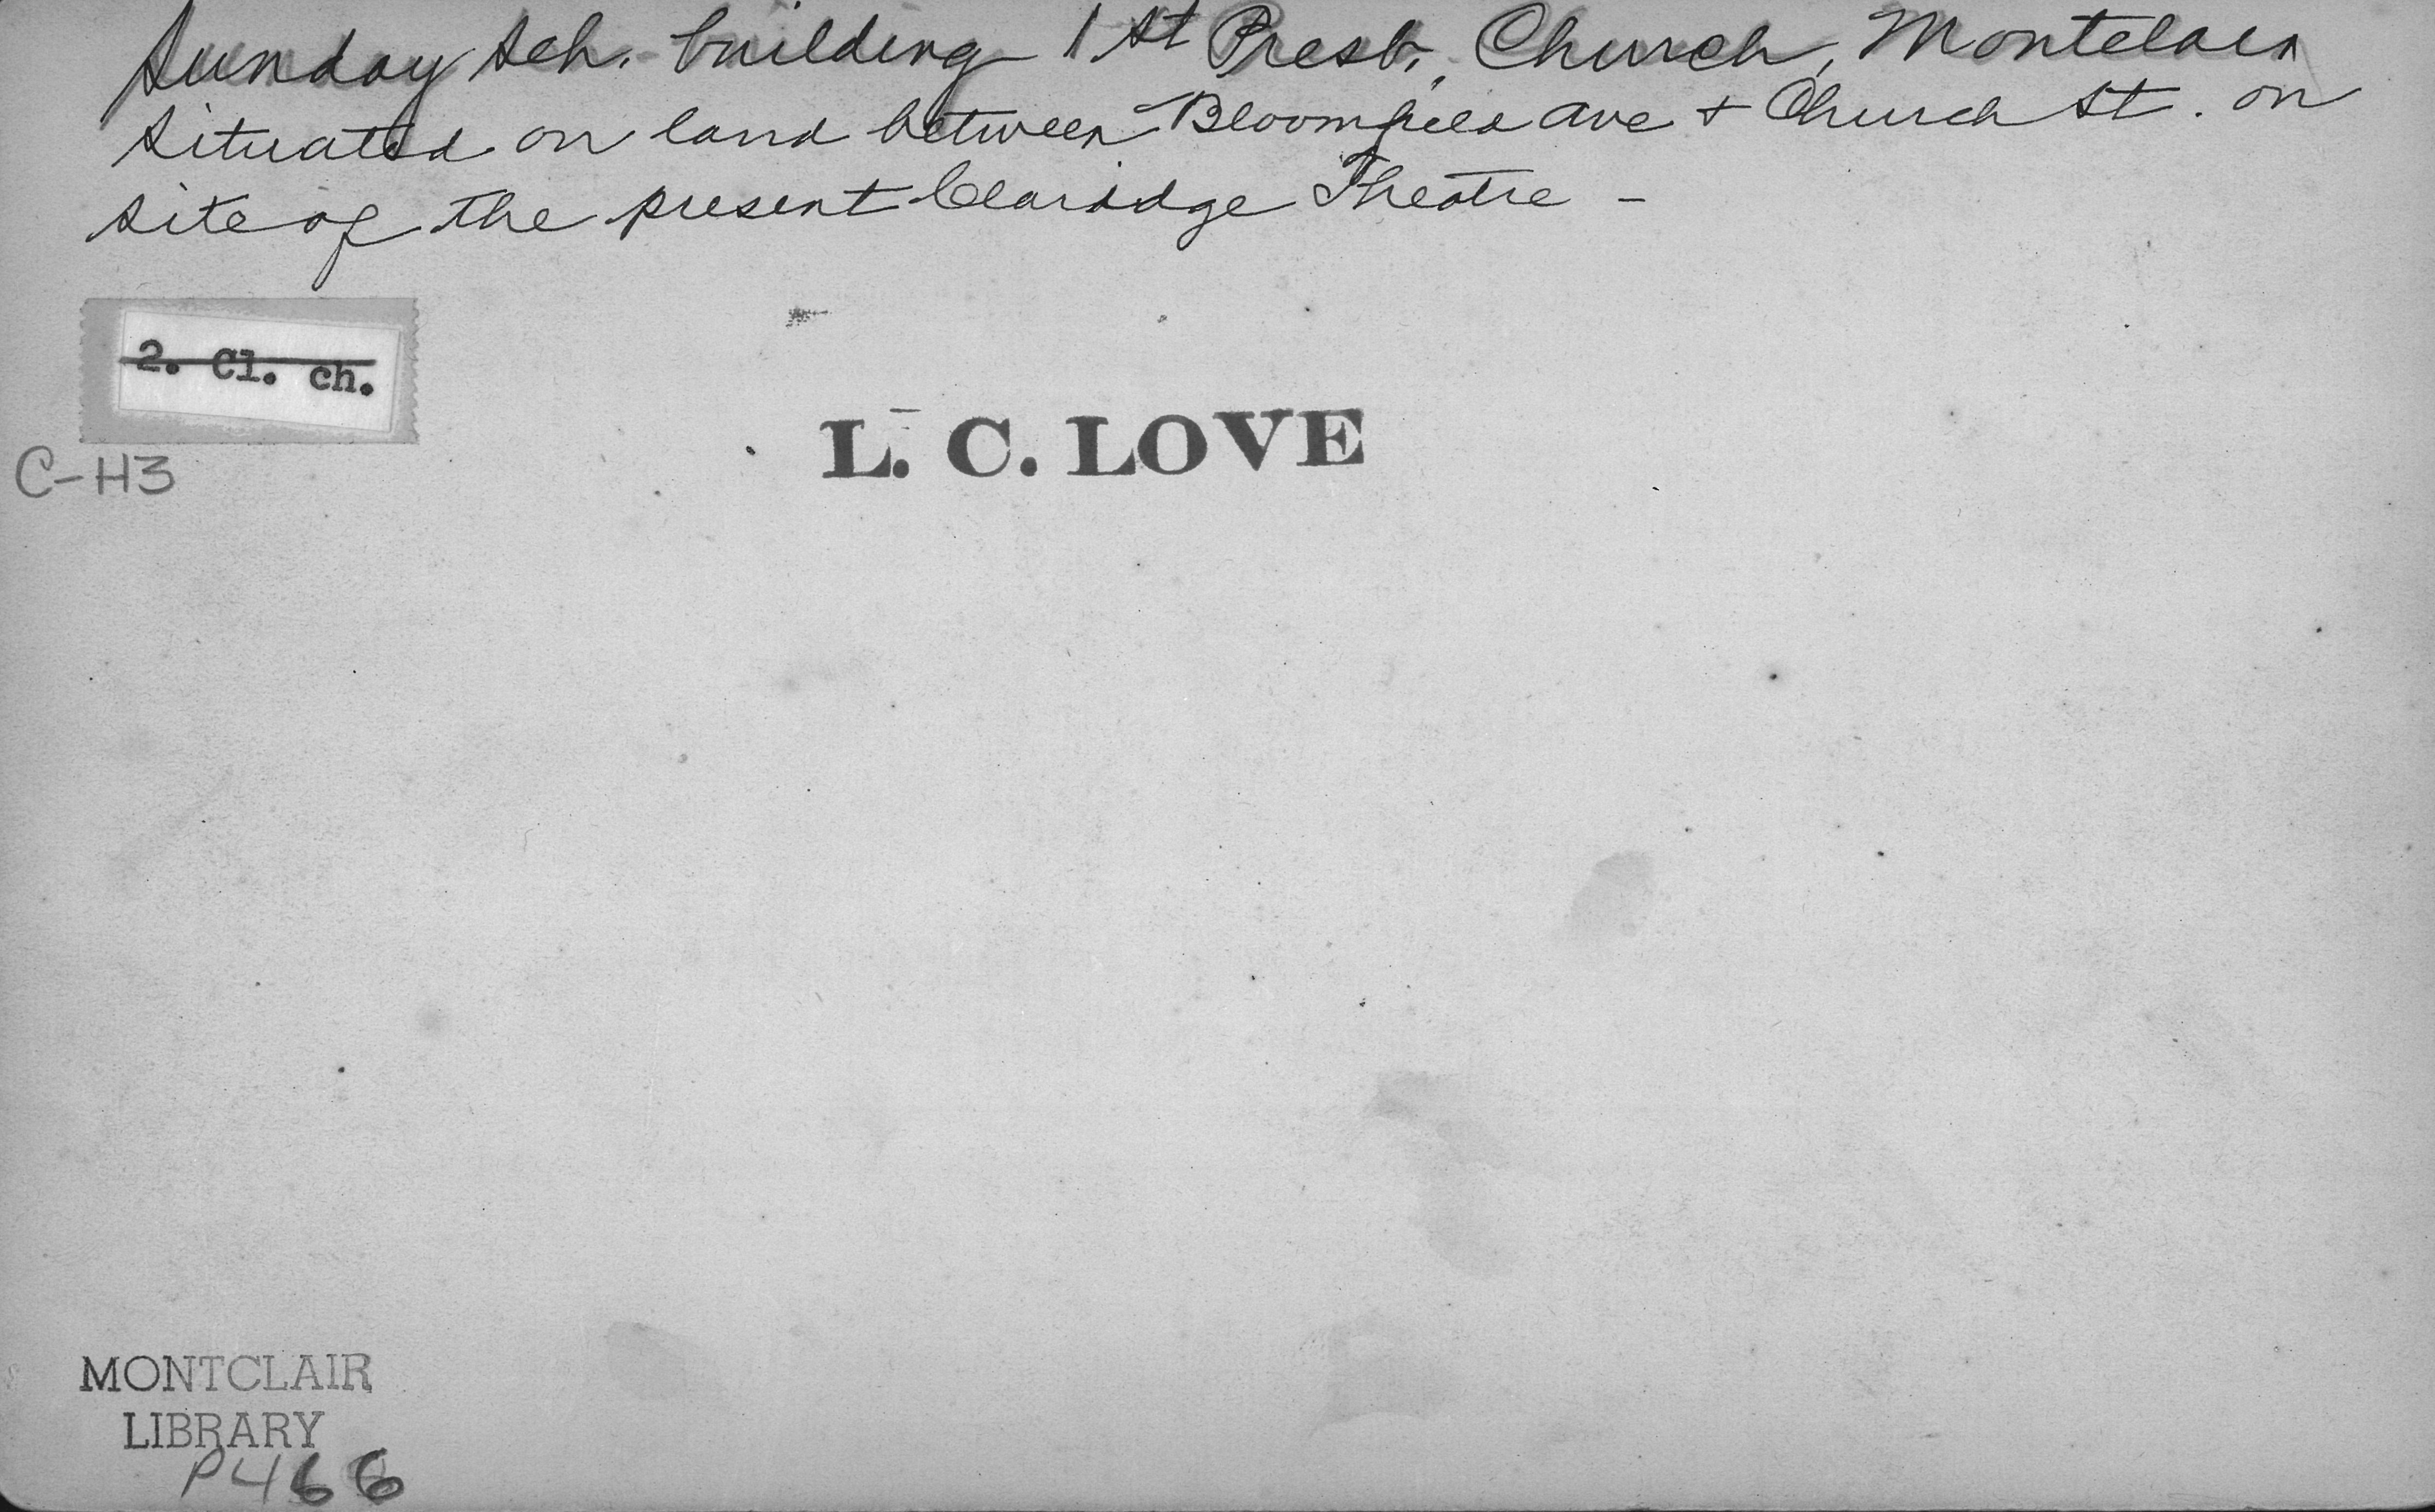 Sunday Sch. building 1st Presb. Church, Montclair
situated on land between Bloomfield Ave + Church St. on
site of the present Claridge Theatre -
2. Cl. ch.
C-H3
L. C. LOVE
MONTCLAIR
LIBRARY
P466